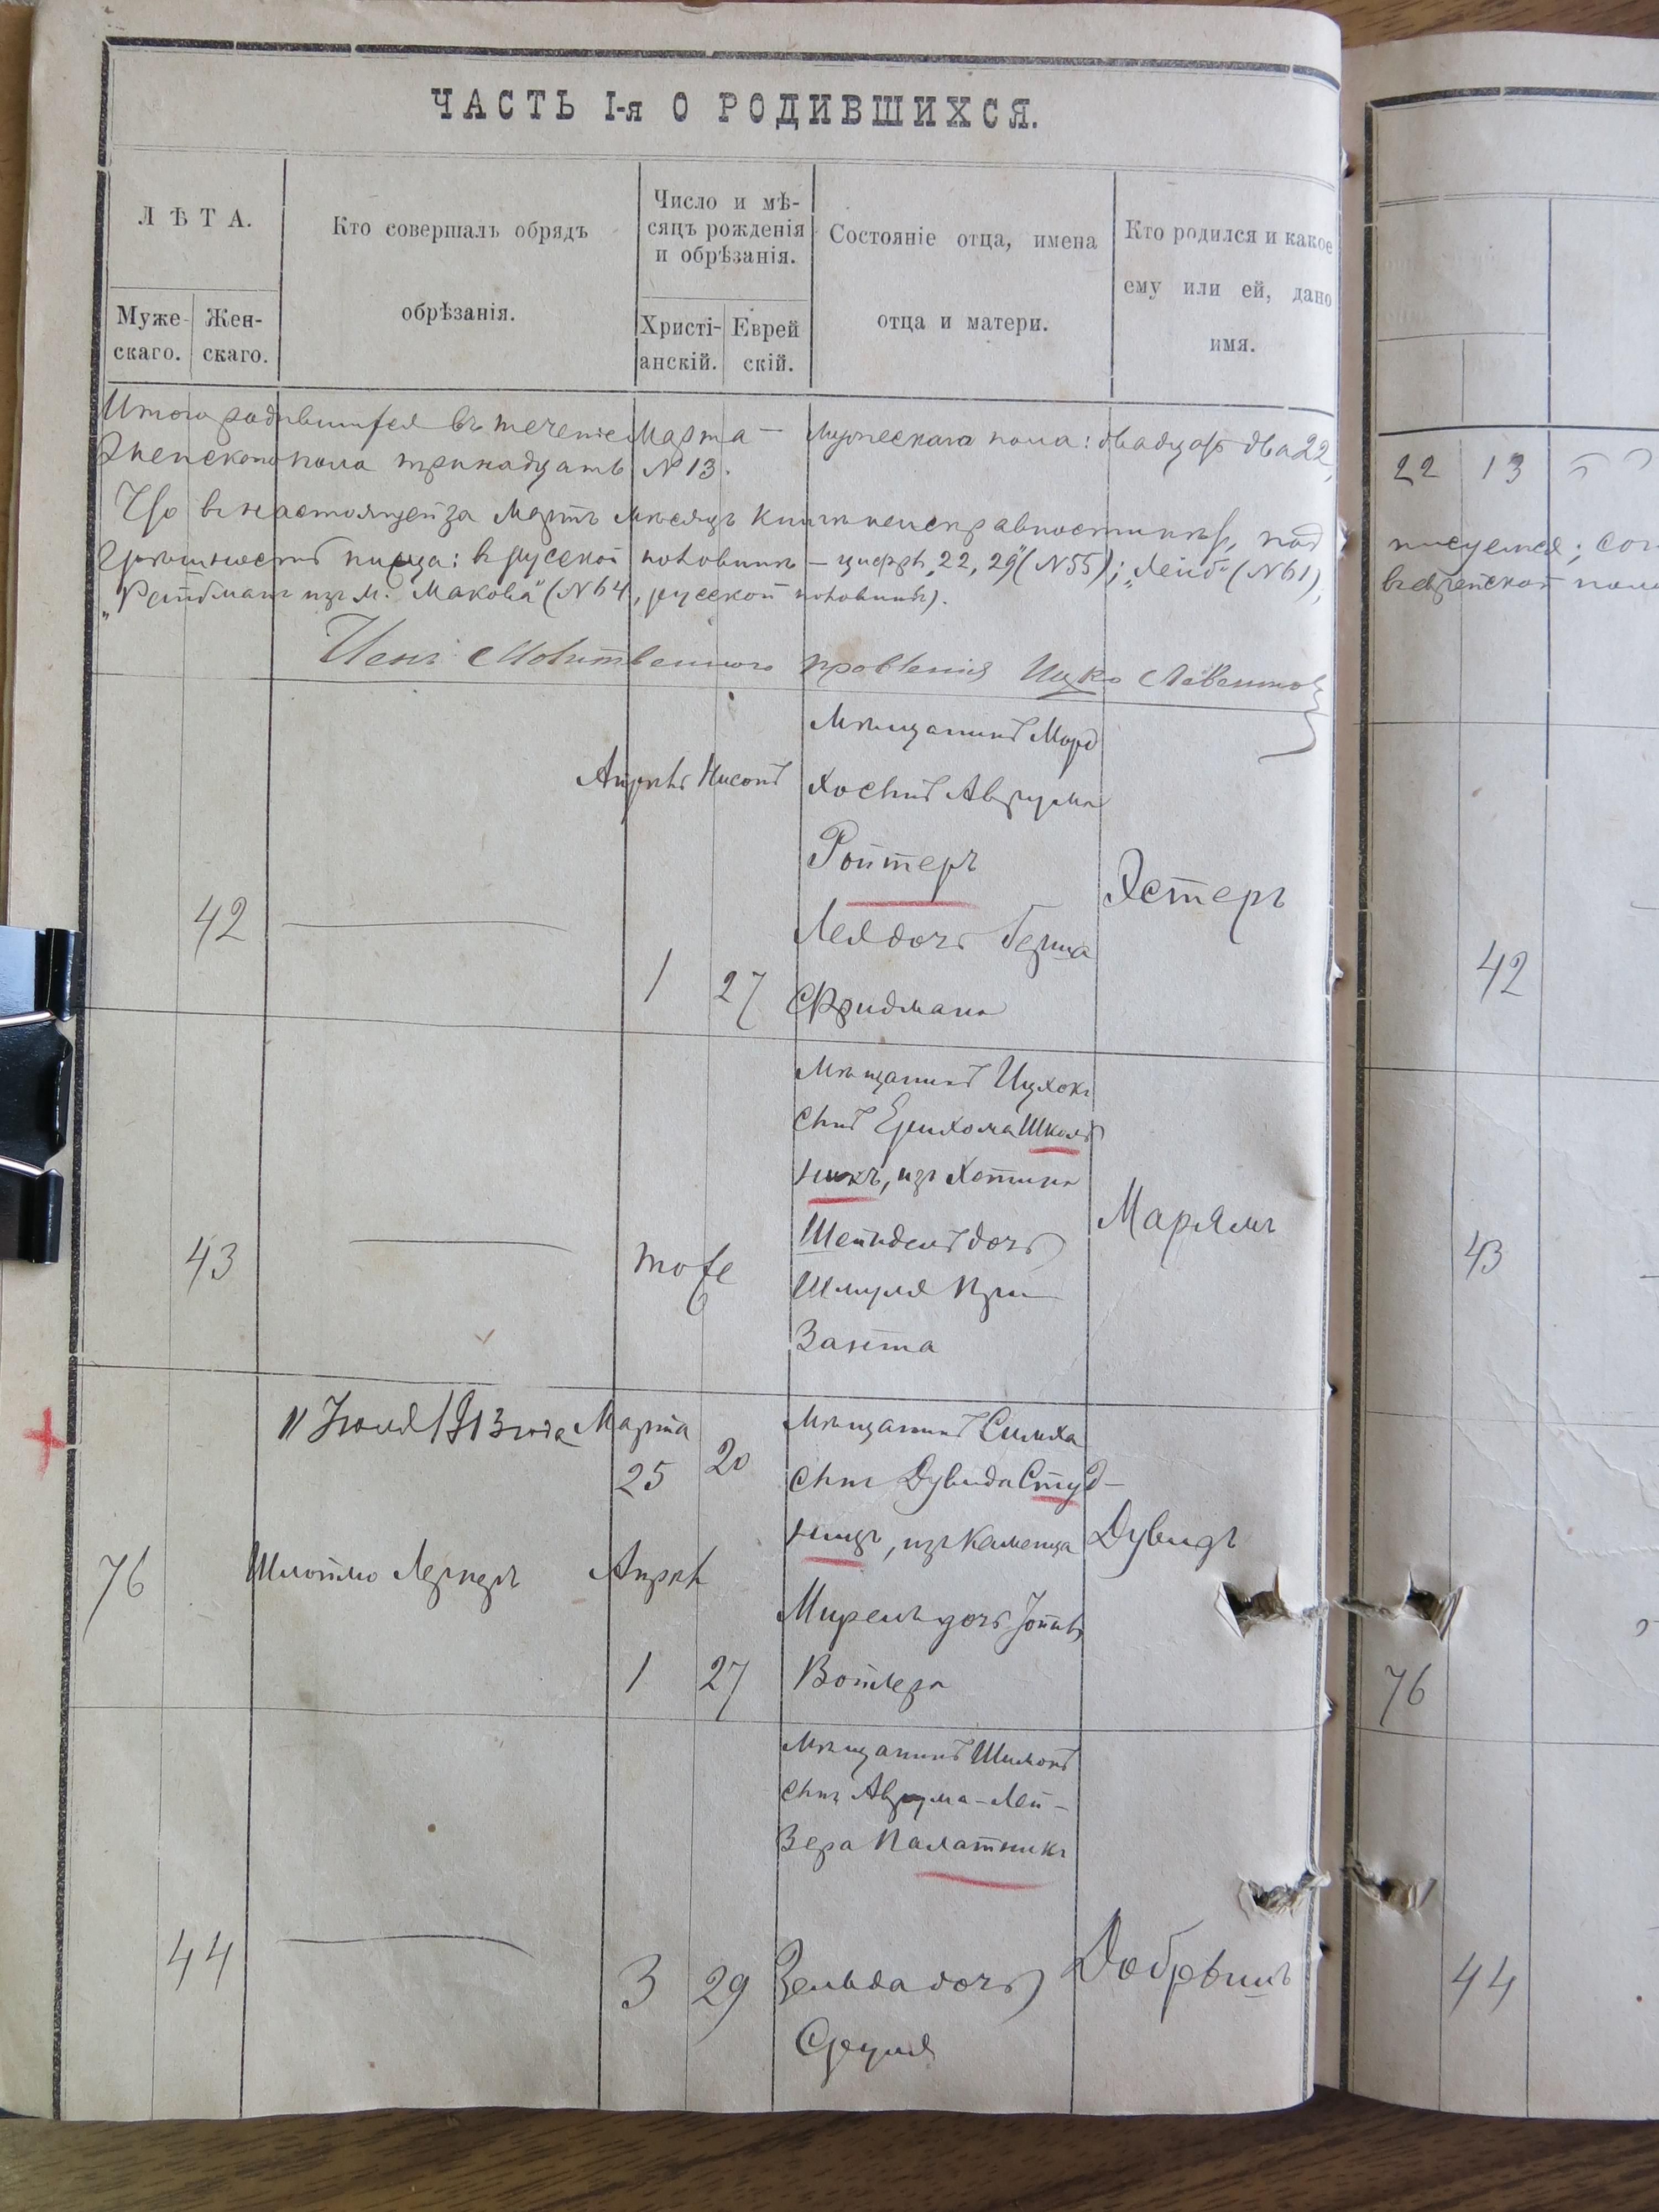 ЧАСТЬ I-я О РОДИВШИХСЯ.
ЛѢТА.
Муже-
скаго.
Жен-
скаго.
Кто совершалъ обрядъ
обрѣзанія.
Число и мѣ-
сяцъ рожденія
и обрѣзанія.
Христі-
анскій.
Еврей
скій.
Состояніе отца, имена
отца и матери.
Кто родился и какое
ему или ей, дано
имя.
Итого родившихся въ теченіе Марта — Мужескаго пола: двадцать два 22,
Женскаго пола тринадцать № 13.
Что въ настоящей за Мартъ мѣсяцъ
пища: въ русской половинѣ — цифрѣ „22, 29" (№ 55); „Лейб" (№ 61),
„Ройтманъ изъ м. Макова" (№ 64, русской половинѣ).
Членъ Молитвеннаго правленія Ицко
22 13
42
Апрѣль Нисонъ
1 27
Мѣщанинъ Морд
Хо сынъ Аврума
Ройтеръ
Лея дочь Берша
Фридмана
Эстеръ
42
43
тоже
Мѣщанинъ Ицхокъ
сынъ Ерихома Школь
никъ, изъ Хотина
Шейндель дочь
Шмуля При
занта
Марьямъ
43
11 Іюля 1913 года
Марта
25 20
76
Шлоймо Лернеръ
Апрѣль
1 27
Мѣщанинъ Симха
сынъ Дувида Студ-
ницъ, изъ Каменца
Мирель дочь
Войлера
Дувидъ
76
44
3 29
Мѣщанинъ Шимонъ
сынъ Аврума-Лей-
зера Палатникъ
Зельда дочь
Сруля
Добрышъ
44